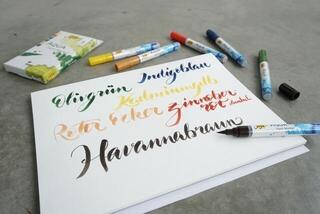 Indigoblau
Olivgrün
Kadmiumgelb
Roter Ocker
Zinnober
rot dunkel
Havannabraun